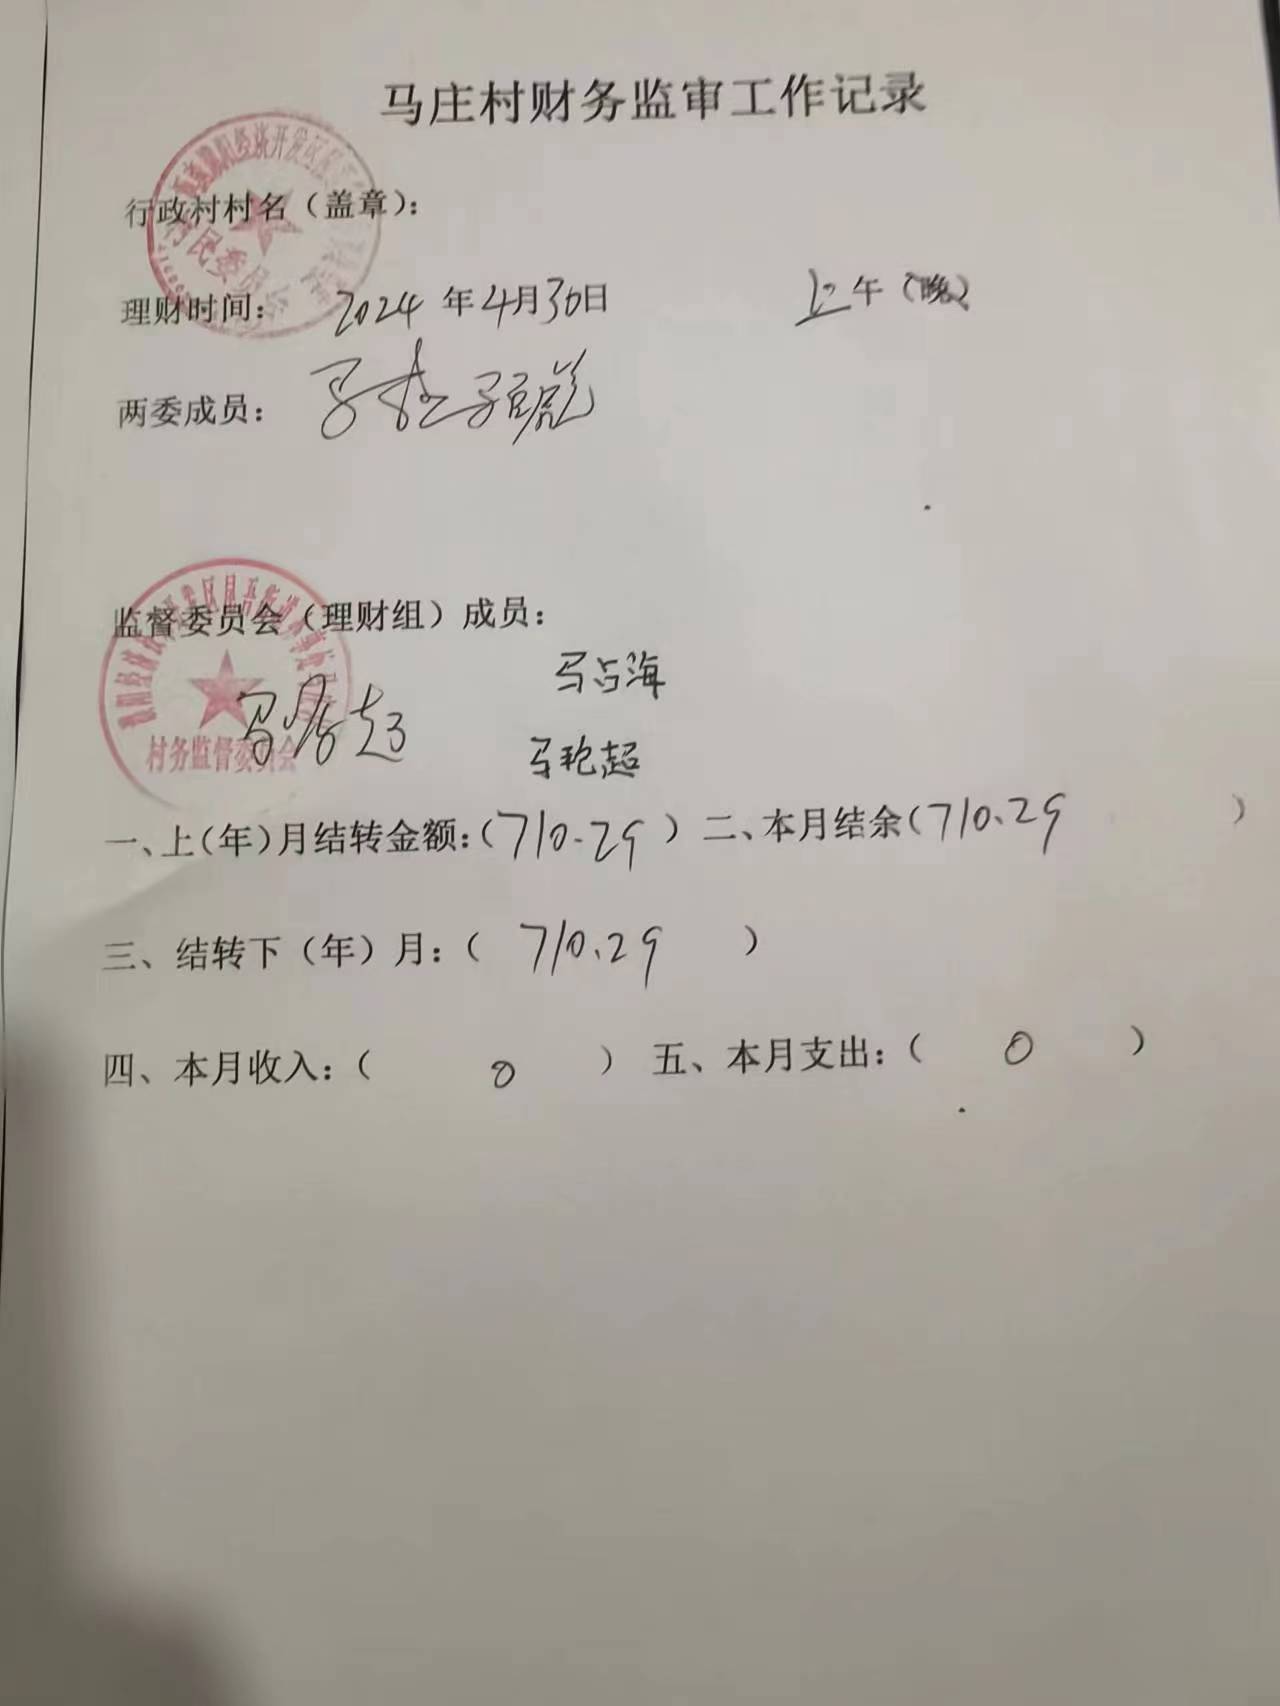 马庄村财务监审工作记录
行政村村名（盖章）：
村民委员会
理财时间： 2024 年 4月 30日 上午（晚）
两委成员： 马
监督委员会（理财组）成员：
马占海
马 超
马艳超
村务监督委员会
一、上（年）月结转金额：（710.29） 二、本月结余（710.29 ）
三、结转下（年）月：（ 710.29 ）
四、本月收入：（ 0 ） 五、本月支出：（ 0 ）